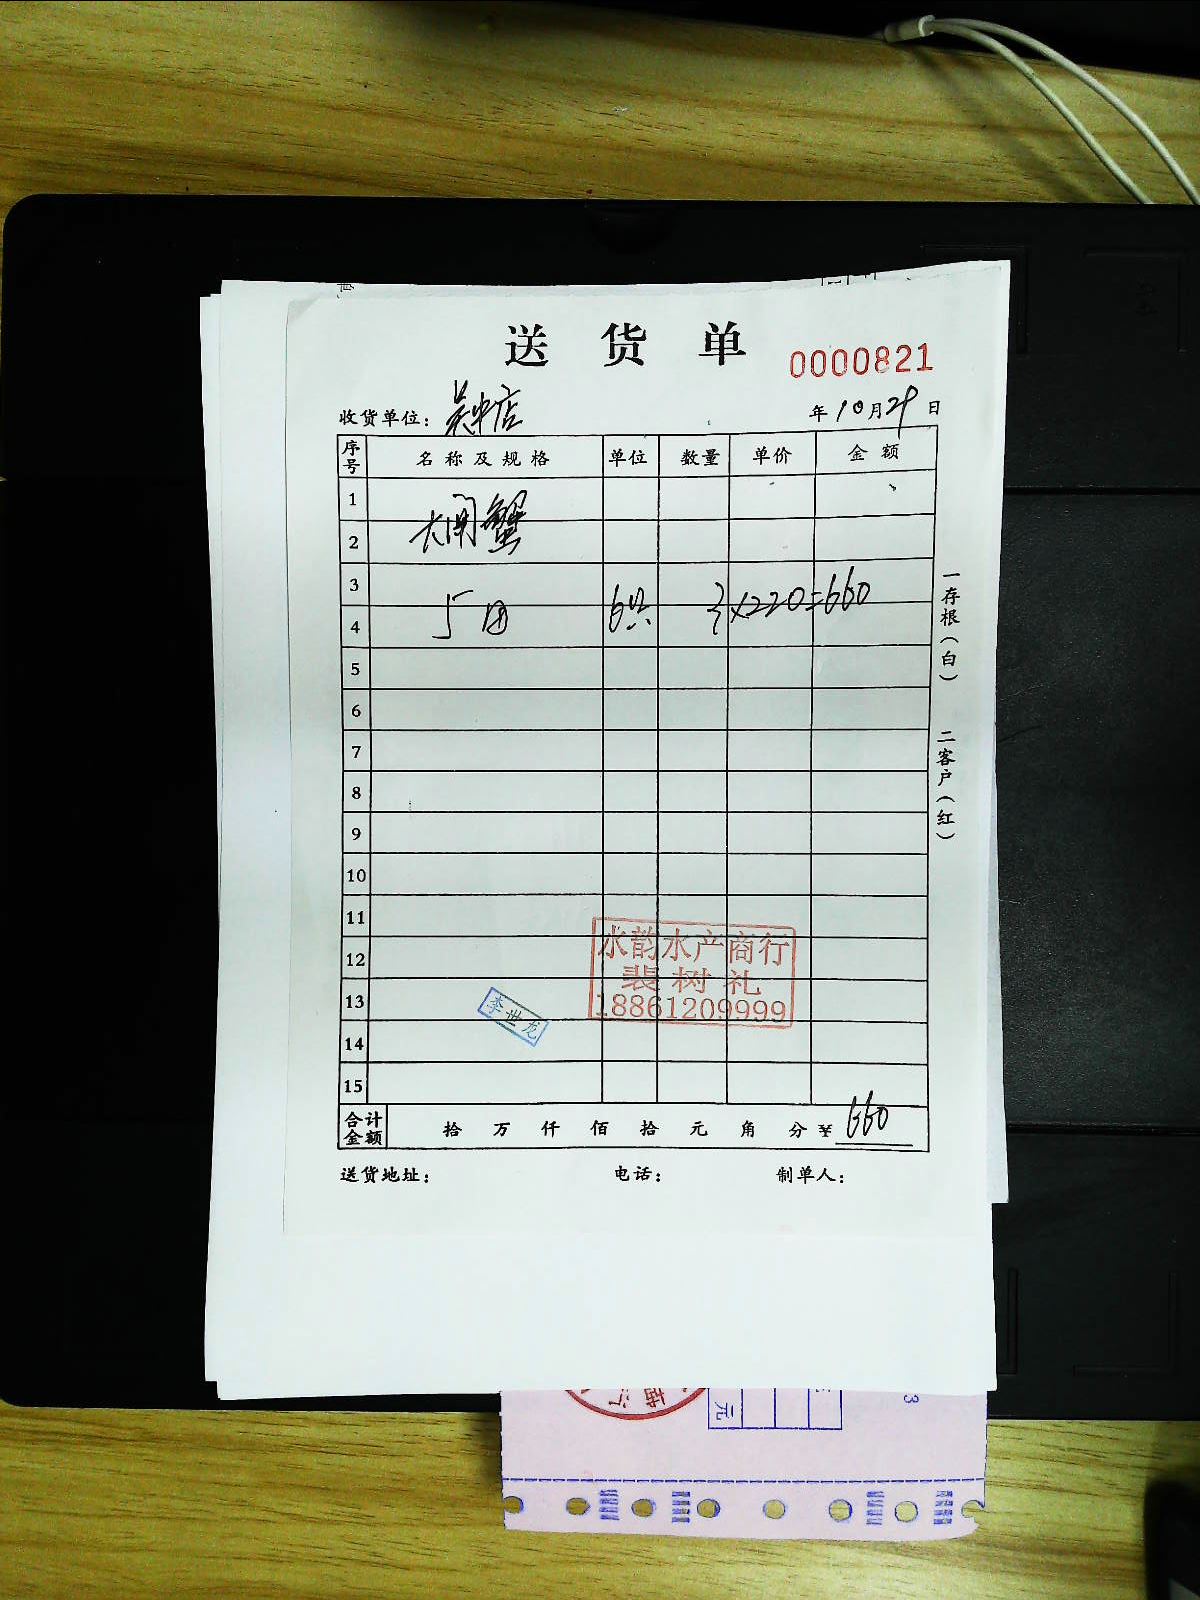 送 货 单
0000821
收货单位: 吴中店
年10月29日
序号 名称及规格 单位 数量 单价 金额
1
2 大闸蟹
3
4 5 母 6只 3×220=660
5
6
7
8
9
10
11
12
13
14
15
水韵水产商行
裴树礼
18861209999
李世龙
合计金额 拾 万 仟 佰 拾 元 角 分 ¥ 660
送货地址: 电话: 制单人:
一存根(白) 二客户(红)
元
3